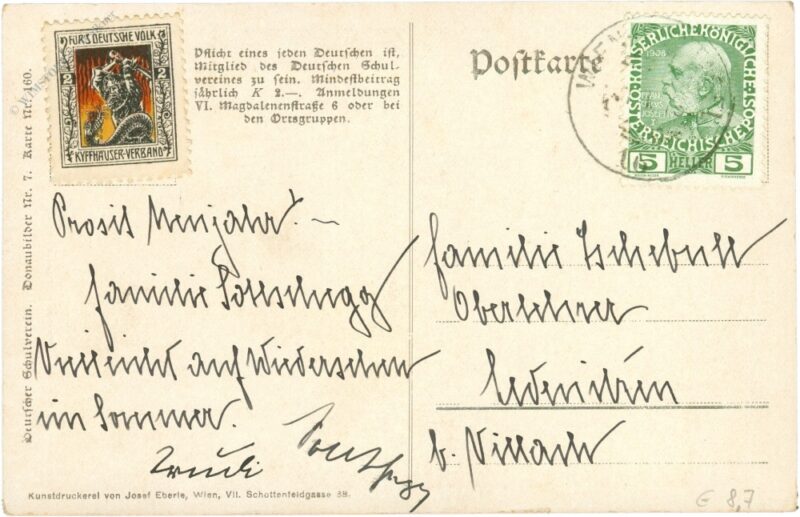 FÜR'S DEUTSCHE VOLK
2 2
KYFFHÄUSER-VERBAND
Pflicht eines jeden Deutschen ist,
Mitglied des Deutschen Schul-
vereines zu sein. Mindestbeitrag
jährlich K 2.—. Anmeldungen
VI. Magdalenenstraße 6 oder bei
den Ortsgruppen.
Postkarte
WIEN
KAISERLICHE KÖNIGLICHE ÖSTERREICHISCHE POST
1908
5 HELLER 5
Deutscher Schulverein. Donaubilder Nr. 7. Karte Nr. 160.
Prosit Neujahr! —
Familie
Vielleicht auf Wiedersehen
im Sommer.
Trudi
Familie Tschebull
Oberlehrer
b. Villach
Kunstdruckerei von Josef Eberle, Wien, VII. Schottenfeldgasse 38.
€ 8,7